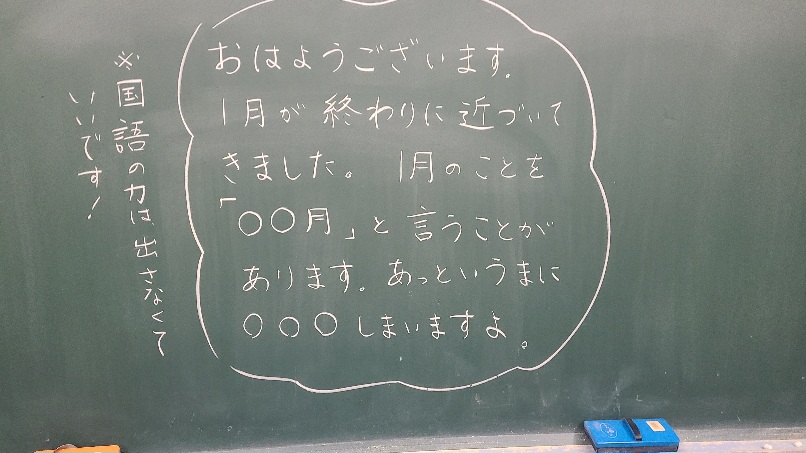 おはようございます。
1月が終わりに近づいて
きました。 1月のことを
「○○月」と言うことが
あります。あっというまに
○○○しまいますよ。
※国語の力は出さなくて
いいです!